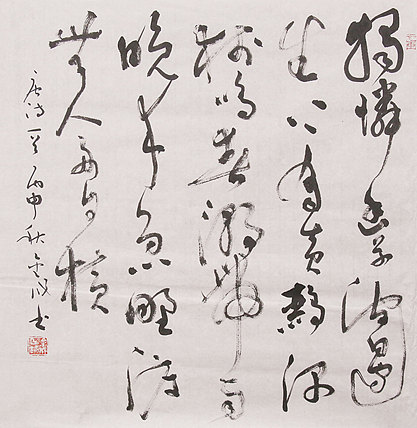 獨憐幽草澗邊
生上有黃鸝深
樹鳴春潮帶雨
晚來急野渡
無人舟自橫
唐詩一首丙申秋書